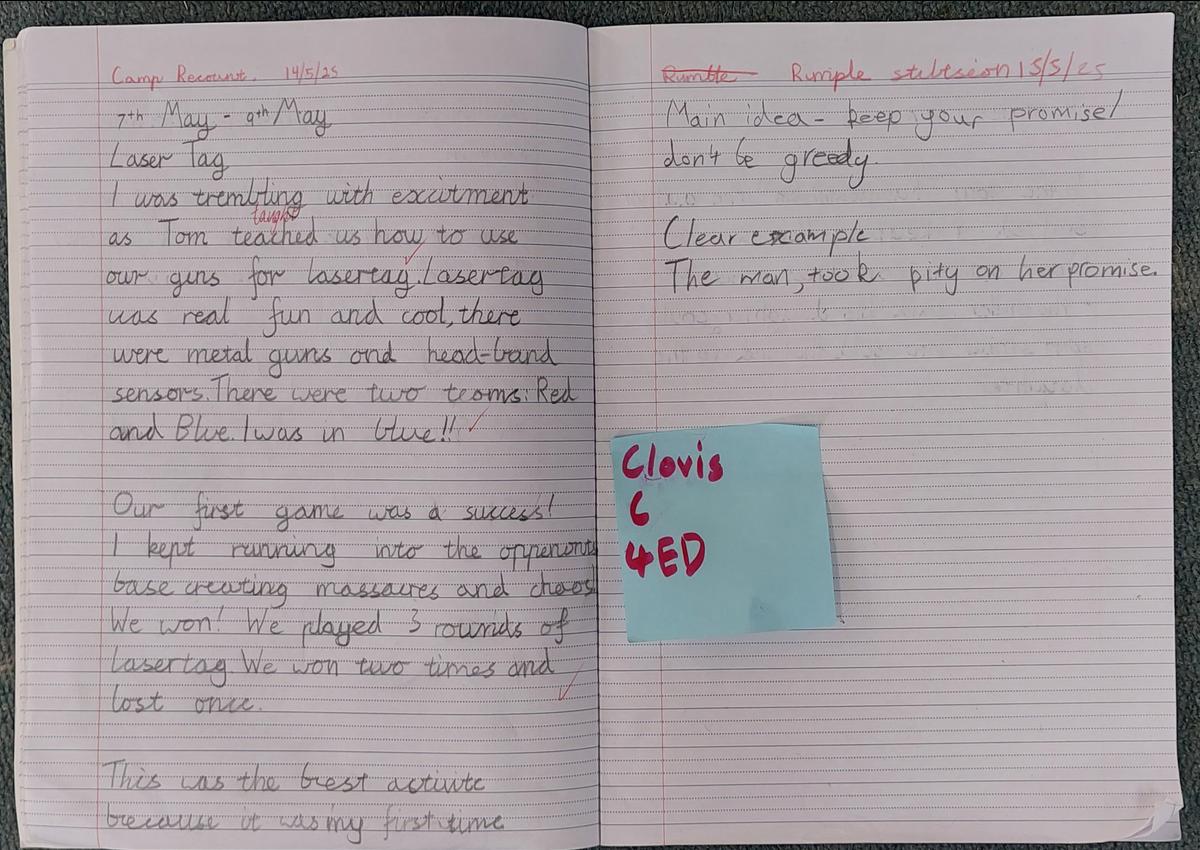 Camp Recount. 14/5/25
7th May - 9th May
Laser Tag
I was trembling with excitment
taught
as Tom teached us how to use
our guns for lasertag. Lasertag
was real fun and cool, there
were metal guns and head-band
sensors. There were two teams: Red
and Blue. I was in blue!!
Our first game was a success!
I kept running into the oppenonts
base creating massacres and chaos!
We won! We played 3 rounds of
lasertag We won two times and
lost once.
This was the best activite
because it was my first time
Rumble Rumple stiltsion 15/5/25
Main idea - keep your promise/
don't be greedy.
Clear example
The man, took pity on her promise.
Clovis
C
4ED